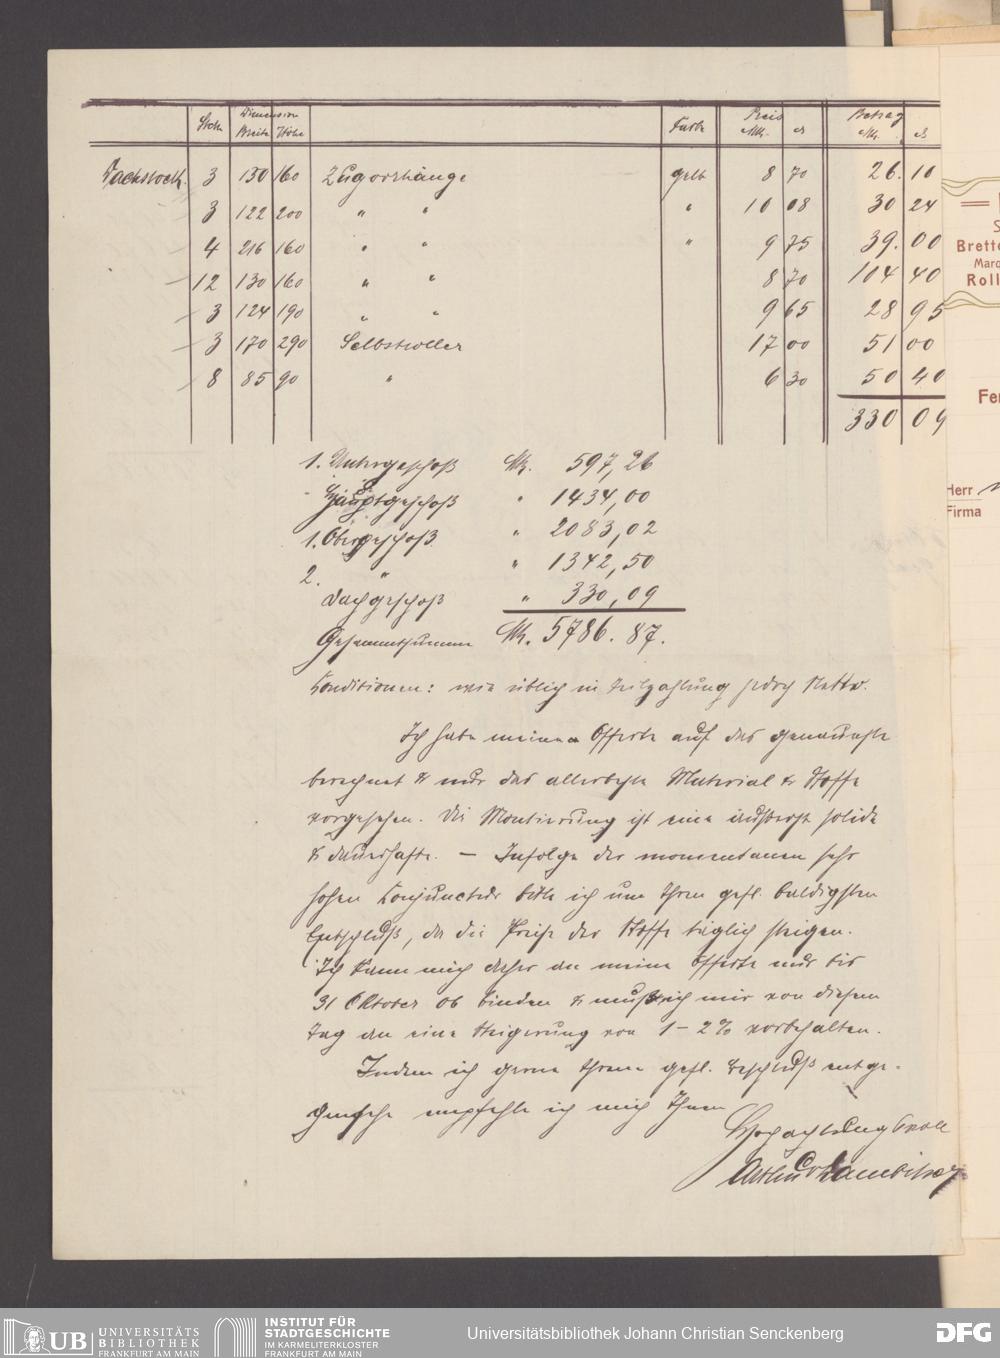 Stck Dimension Farbe Preis Betrag
Breite Höhe Mk. ₰ Mk. ₰
Dachstock. 3 130 160 Zugvorhänge gelb 8 70 26. 10
3 122 200 " " " 10 08 30 24
4 216 160 " " " 9 75 39. 00
12 130 160 " " 8 70 104 40
3 124 190 " " 9 65 28 95
3 170 290 Selbstroller 17 00 51 00
8 85 90 " 6 30 50 40
330 09
1. Untergeschoß Mk. 597,26
Hauptgeschoß " 1434,00
1. Obergeschoß " 2083,02
2. " " 1342,50
Dachgeschoß " 330,09
Gesammtsumme Mk. 5786.87.
Conditionen: wie üblich in Teilzahlung jedoch Netto.
Ich habe meine Offerte auf das genaueste
berechnet & nur das allerbeste Material & Stoffe
vorgesehen. Die Montierung ist eine äußerst solide
& dauerhafte. — Infolge der momentanen sehr
hohen Conjunctur bitte ich um Ihren gefl. baldigsten
Entschluß, da die Preise der Stoffe täglich steigen.
Ich kann mich daher an meine Offerte nur bis
31 Oktober 06 binden & muß ich mir von diesem
Tag an eine Steigerung von 1–2% vorbehalten.
Indem ich gerne Ihrem gefl. Beschluß entge-
gensehe empfehle ich mich Ihnen
Hochachtungsvoll
Arthur
Brette
Marq
Roll
Fe
Herr
Firma
UB UNIVERSITÄTS
BIBLIOTHEK
FRANKFURT AM MAIN
INSTITUT FÜR
STADTGESCHICHTE
IM KARMELITERKLOSTER
FRANKFURT AM MAIN
Universitätsbibliothek Johann Christian Senckenberg
DFG